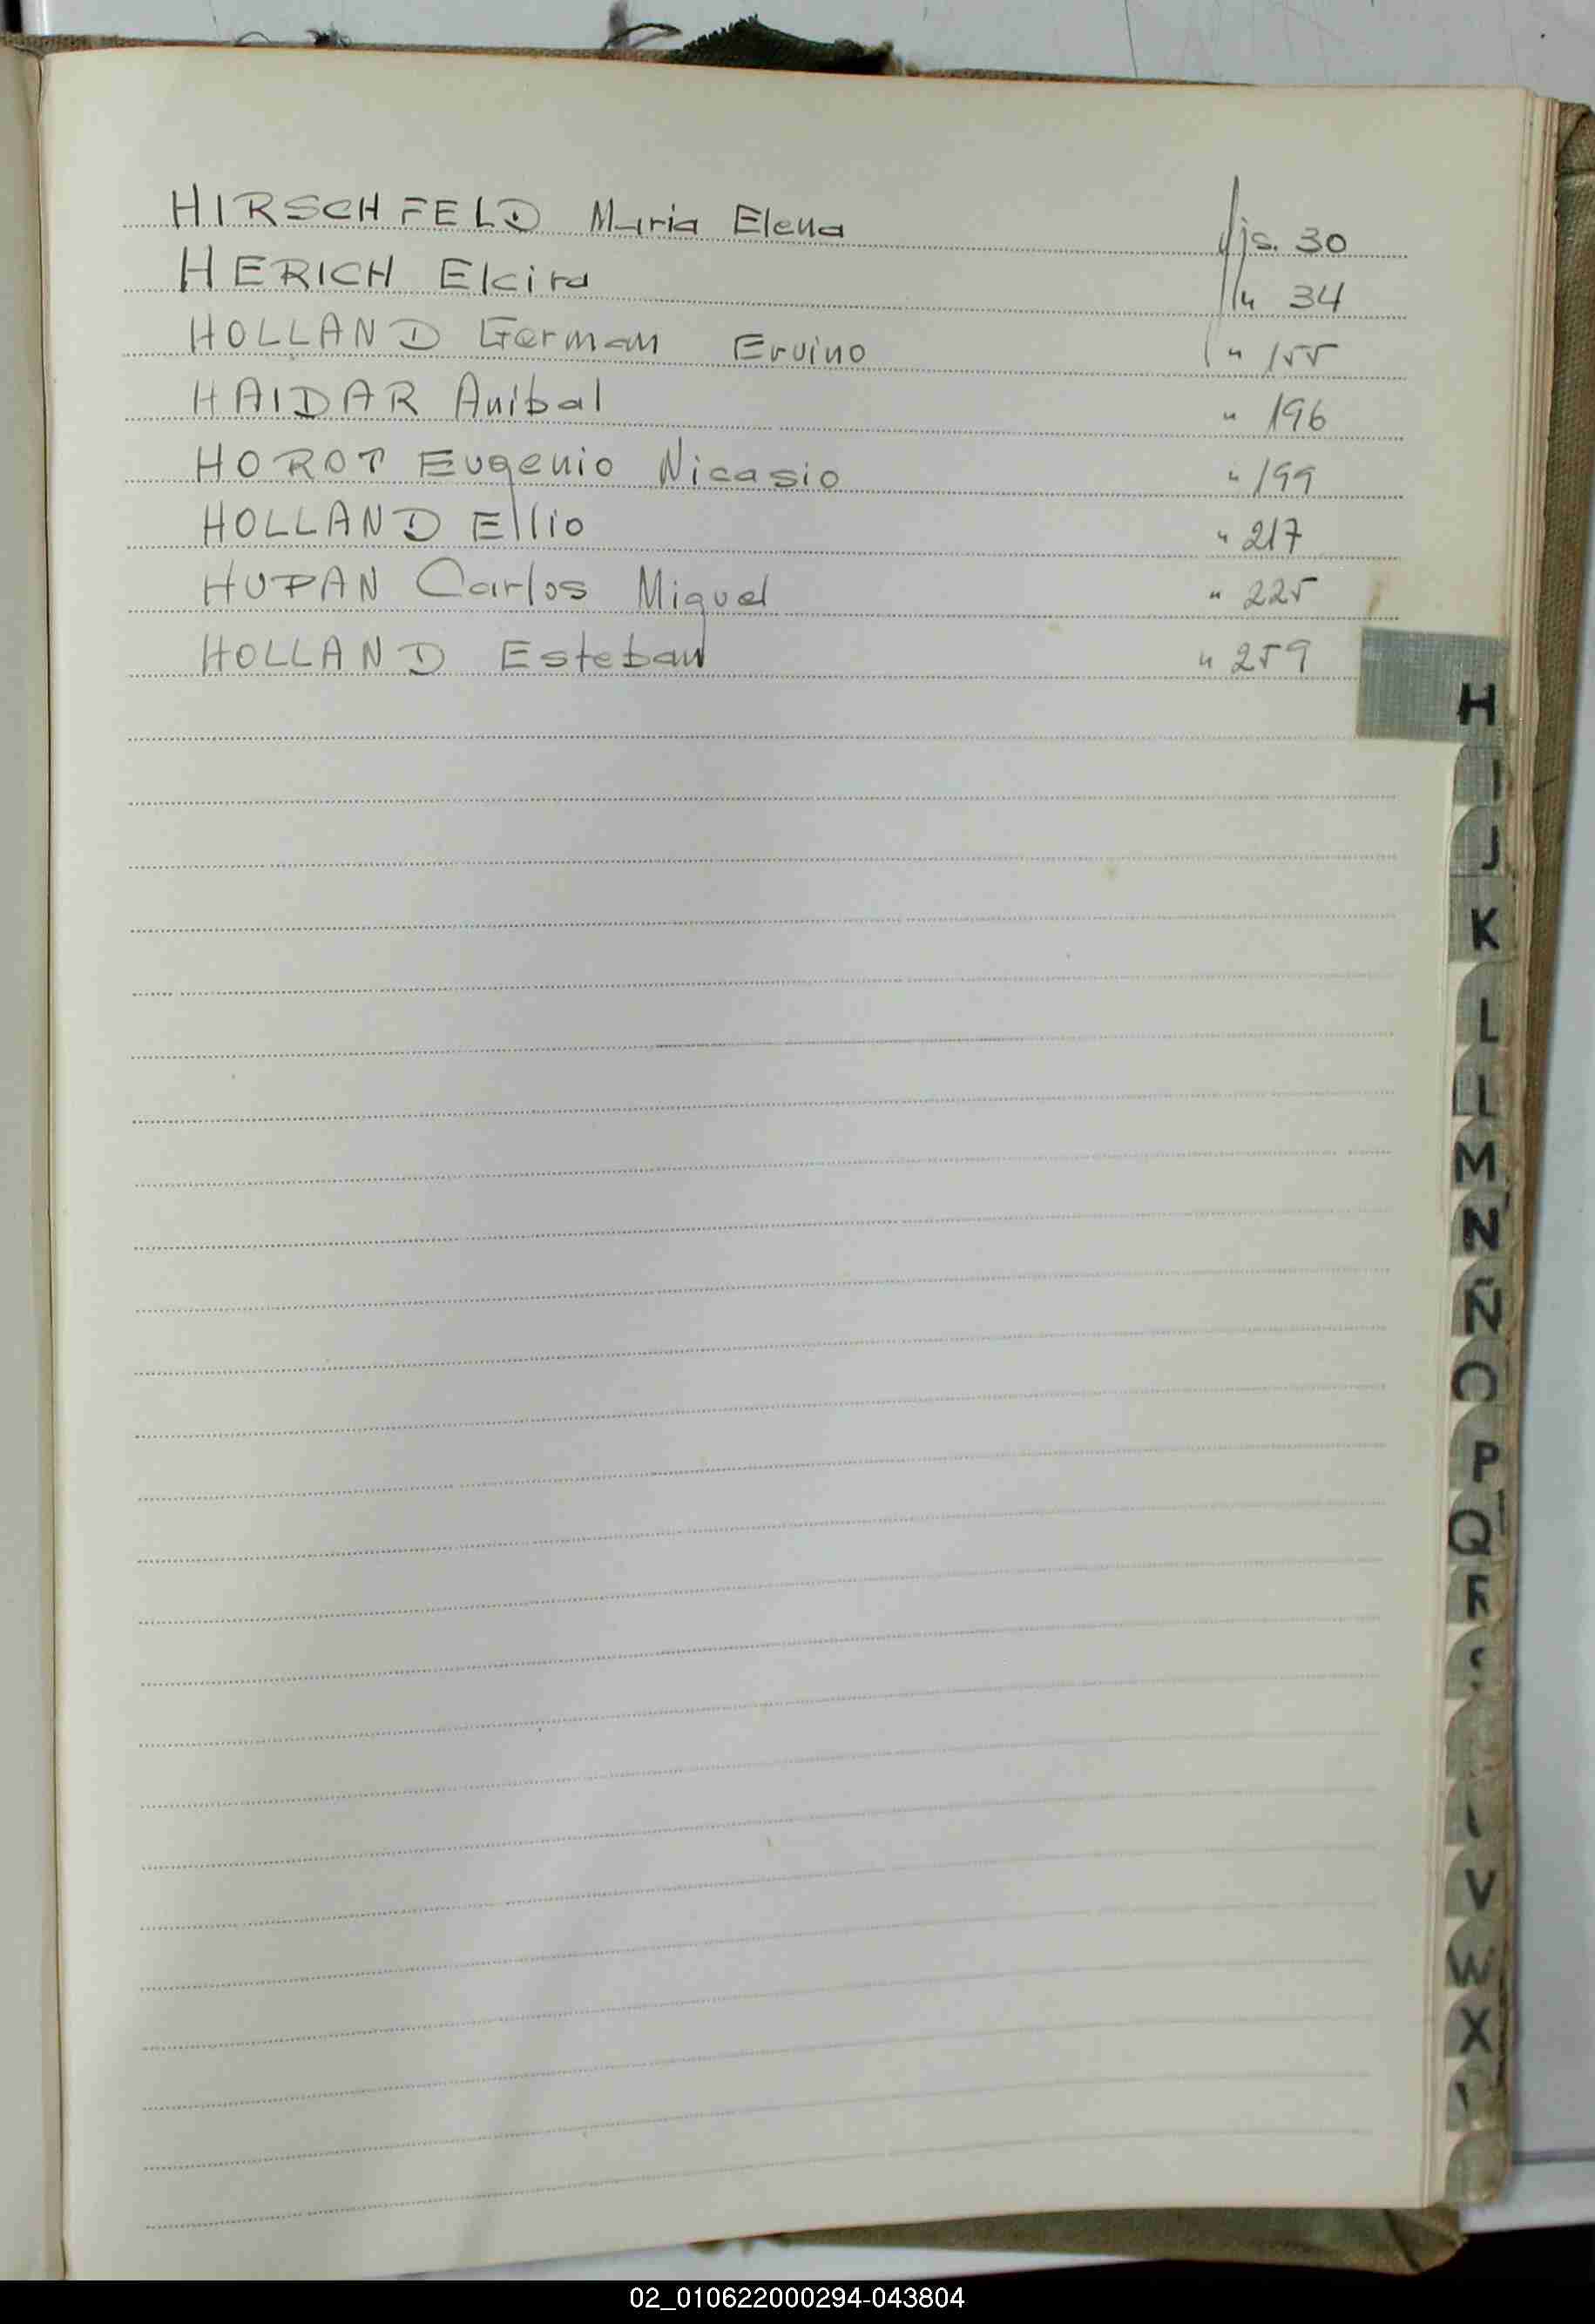 HIRSCHFELD Maria Elena fjs. 30
HERICH Elcira " 34
HOLLAND German Ervino " 155
HAIDAR Anibal " 196
HOROT Eugenio Nicasio " 199
HOLLAND Ellio " 217
HUPAN Carlos Miguel " 225
HOLLAND Esteban " 259
H
I
J
K
L
L
M
N
Ñ
O
P
Q
R
V
W
X
02_010622000294-043804